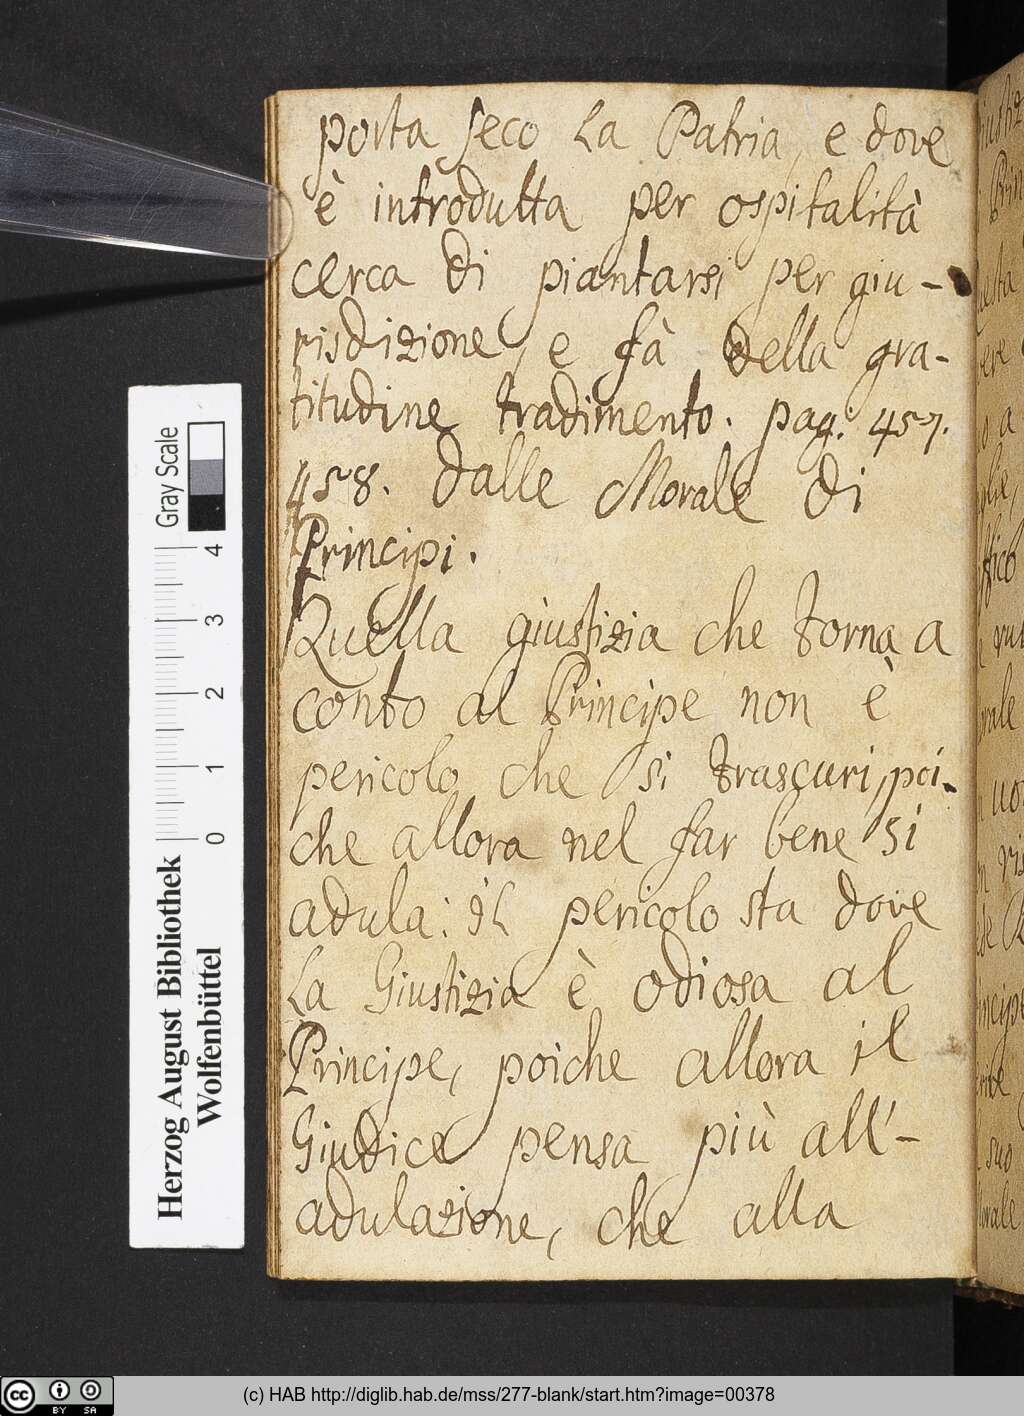 porta seco la Patria, e dove
è introdutta per ospitalità
cerca di piantarsi per giu-
risdizione, e fà della gra-
titudine tradimento. pag: 457.
458. dalle Morale di
Principi.
Quella giustizia che torna a
conto al Principe non è
pericolo che si trascuri, poi-
che allora nel far bene si
adula: il pericolo sta dove
la Giustizia è odiosa al
Principe, poiche allora il
Giudice pensa più all'-
adulazione, che alla
Herzog August Bibliothek
Wolfenbüttel
0 1 2 3 4
Gray Scale
cc BY SA
(c) HAB http://diglib.hab.de/mss/277-blank/start.htm?image=00378